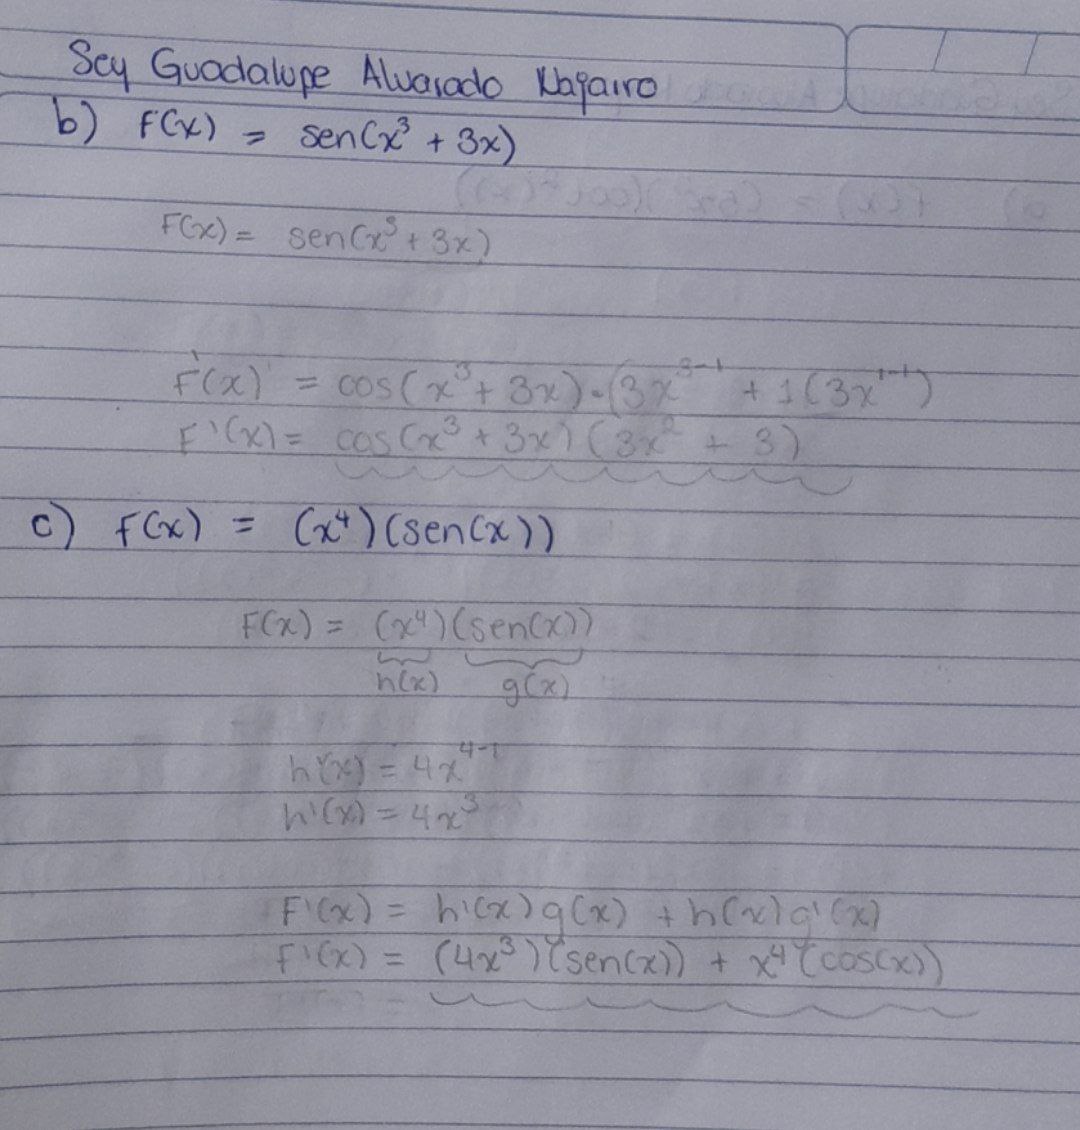 Sey Guadalupe Alvarado Najairo
b) F(x) = sen(x³ + 3x)
F(x) = sen(x³ + 3x)
F'(x) = cos(x³ + 3x)·(3x³⁻¹ + 1(3x¹⁻¹)
F'(x) = cos(x³ + 3x)(3x² + 3)
c) f(x) = (x⁴)(sen(x))
F(x) = (x⁴)(sen(x))
h(x) g(x)
h'(x) = 4x⁴⁻¹
h'(x) = 4x³
F'(x) = h'(x)g(x) + h(x)g'(x)
f'(x) = (4x³)(sen(x)) + x⁴(cos(x))